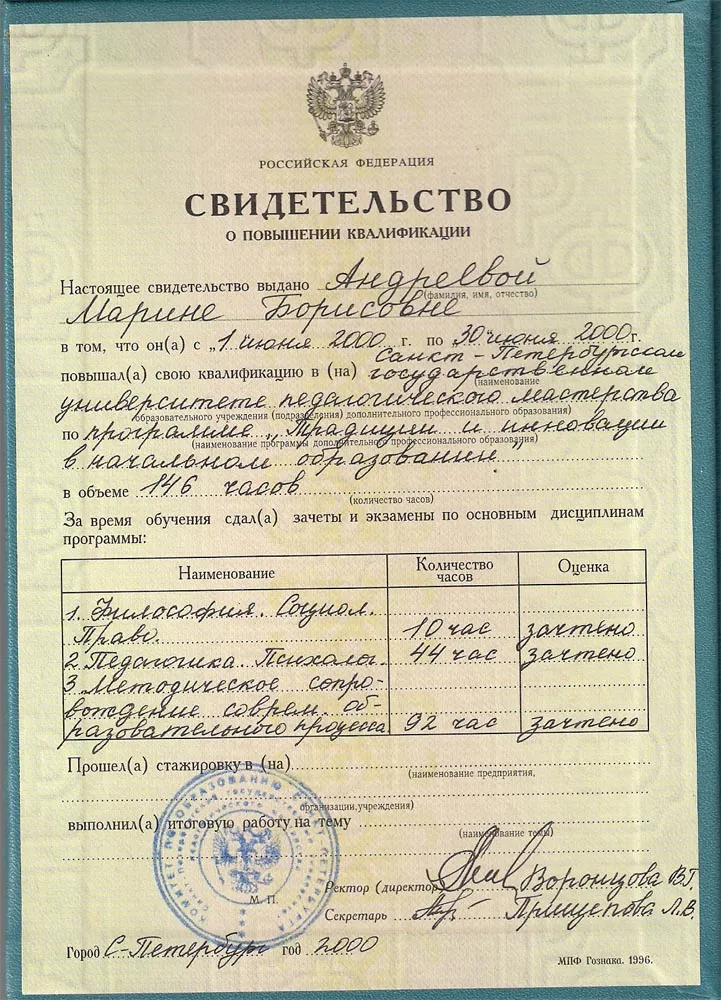 РОССИЙСКАЯ ФЕДЕРАЦИЯ
СВИДЕТЕЛЬСТВО
О ПОВЫШЕНИИ КВАЛИФИКАЦИИ
Настоящее свидетельство выдано Андреевой
(фамилия, имя, отчество)
Марине Борисовне
в том, что он(а) с „1" июня 2000 г. по „30" июня 2000 г.
повышал(а) свою квалификацию в (на) Санкт-Петербургском
государственном
(наименование
университете педагогического мастерства
образовательного учреждения (подразделения) дополнительного профессионального образования)
по программе „Традиции и инновации
(наименование программы дополнительного профессионального образования)
в начальном образовании"
в объеме 146 часов
(количество часов)
За время обучения сдал(а) зачеты и экзамены по основным дисциплинам
программы:
Наименование Количество часов Оценка
1. Философия. Социол.
Право. 10 час зачтено
2. Педагогика. Психолог. 44 час зачтено
3. Методическое сопро-
вождение соврем. об-
разовательного процесса. 92 час зачтено
Прошел(а) стажировку в (на)
(наименование предприятия,
организации, учреждения)
выполнил(а) итоговую работу на тему
(наименование темы)
КОМИТЕТ ПО ОБРАЗОВАНИЮ САНКТ-ПЕТЕРБУРГА
М. П.
Ректор (директор) Воронцова В.Г.
Секретарь Прищепова Л.В.
Город С-Петербург год 2000
МПФ Гознака. 1996.